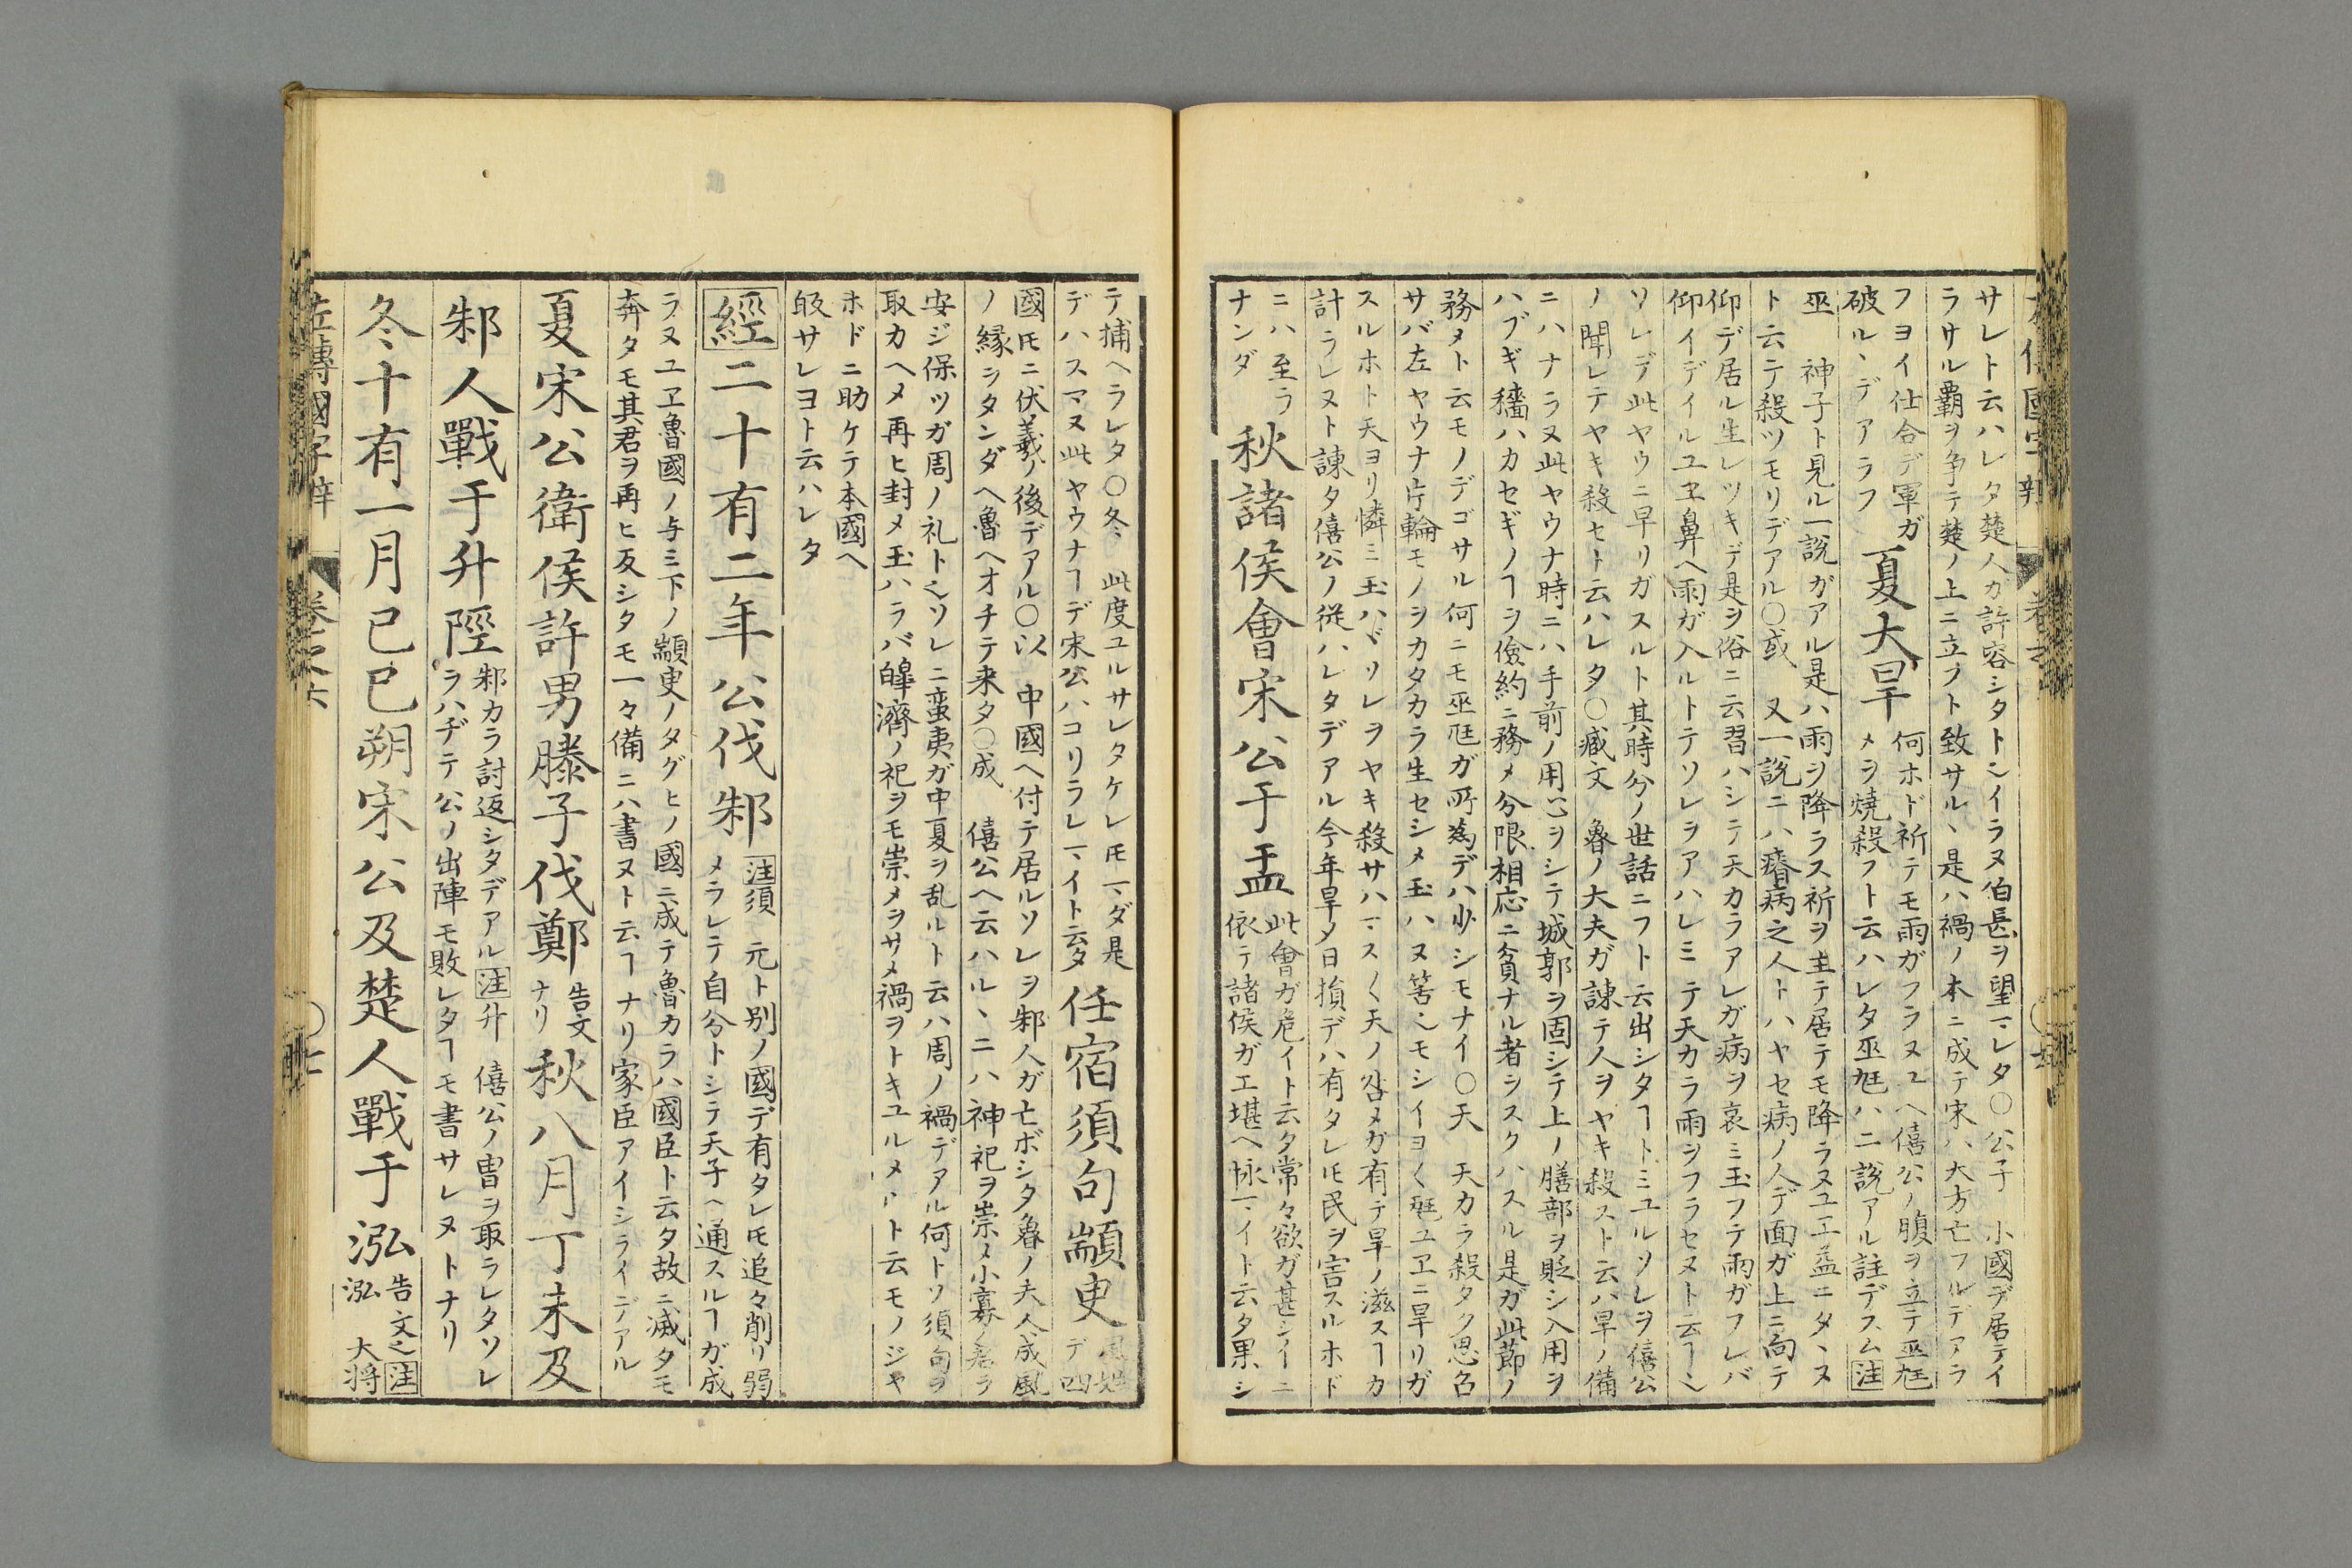 サレト云ハレタ楚人カ許容シタト乀イラヌ伯長ヲ望マレタ〇公子　小國デ居テイ
ラサル覇ヲ争テ楚ノ上ニ立フト致サル、是ハ禍ノ本ニ成テ宋ハ大方亡フルデアラ
フヨイ仕合デ軍ガ
破ル、デアラフ
夏大旱
何ホド祈テモ雨ガフラヌユヘ僖公ノ腹ヲ立テ巫尫
メヲ燒殺フト云ハレタ巫尫ハ二說アル註デスム注
巫　神子ト見ル一說ガアル是ハ雨ヲ降ラス祈ヲ主テ居テモ降ラヌユヱ益ニタヽヌ
ト云テ殺ツモリデアル〇或　又一說ニハ瘠病之人トハヤセ病ノ人デ面ガ上ニ向テ
仰デ居ル生レツキデ是ヲ俗ニ云習ハシテ天カラアレガ病ヲ哀ミ玉フテ雨ガフレバ
仰イデイルユヱ鼻ヘ雨ガ入ルトテソレヲアハレミテ天カラ雨ヲフラセヌト云ヿ乀
ソレデ此ヤウニ旱リガスルト其時分ノ世話ニフト云出シタヿトミユルソレヲ僖公
ノ聞レテヤキ殺セト云ハレタ〇臧文　魯ノ大夫ガ諌テ人ヲヤキ殺スト云ハ旱ノ備
ニハナラヌ此ヤウナ時ニハ手前ノ用心ヲシテ城郭ヲ固シテ上ノ膳部ヲ貶シ入用ヲ
ハブギ穡ハカセギノヿヲ儉約ニ務メ分限相応ニ貧ナル者ヲスクハスル是ガ此節ノ
務メト云モノデゴサル何ニモ巫尫ガ所為デハ少シモナイ〇天　天カラ殺タク思召
サバ左ヤウナ片輪モノヲカタカラ生セシメ玉ハヌ筈乀モシイヨ〱尫ユヱニ旱リガ
スルホト天ヨリ憐ミ玉ハヾソレヲヤキ殺サハマス〱天ノ咎メガ有テ旱ノ滋スヿカ
計ラレヌト諌タ僖公ノ従ハレタデアル今年旱メ日損デハ有タレ𪜈民ヲ害スルホド
ニハ至ラ
ナンダ
秋諸侯會宋公于盂
此會ガ危イト云タ常々欲ガ甚シイニ
依テ諸侯ガエ堪ヘ怺マイト云タ果シ
テ捕ヘラレタ〇冬　此度ユルサレタケレ𪜈マダ是
デハスマヌ此ヤウナヿデ宋公ハコリラレマイト云タ
任宿須句顓臾
風姓
デ四
國𪜈ニ伏羲ノ後デアル〇以　中國ヘ付テ居ルソレヲ邾人ガ亡ボシタ魯ノ夫人成風
ノ縁ヲタンダヘ魯ヘオチテ来タ〇成　僖公ヘ云ハル、ニハ神祀ヲ崇メ小寡ノ者ヲ
安ジ保ツガ周ノ礼ト乀ソレニ蛮夷ガ中夏ヲ乱ルト云ハ周ノ禍デアル何トソ須句ヲ
取カヘメ再ヒ封メ玉ハラバ皥濟ノ祀ヲモ崇メヲサメ禍ヲトキユルメルト云モノジヤ
ホドニ助ケテ本國ヘ
皈サレヨト云ハレタ
經二十有二年公伐邾
注須　元ト別ノ國デ有タレ𪜈追々削リ弱
メラレテ自分トシテ天子ヘ通スルヿガ成
ラヌユヱ魯國ノ与ミ下ノ顓臾ノタグヒノ國ニ成テ魯カラハ國臣ト云タ故ニ滅タモ
奔タモ其君ヲ再ヒ反シタモ一々備ニハ書ヌト云ヿナリ家臣アイシライデアル
夏宋公衛侯許男滕子伐鄭
告文
ナリ
秋八月丁未及
邾人戰于升陘
邾カラ討返シタデアル注升　僖公ノ冑ヲ取ラレタソレ
ラハヂテ公ノ出陣モ敗レタヿモ書サレヌトナリ
冬十有一月己巳朔宋公及楚人戰于泓
告文之注
泓　大将
左傳國字辯　卷之六